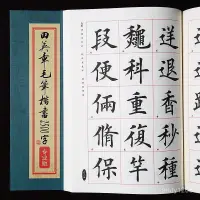 田英章毛筆楷書2500字
送退香秒種
科重竿
段便倆脩保